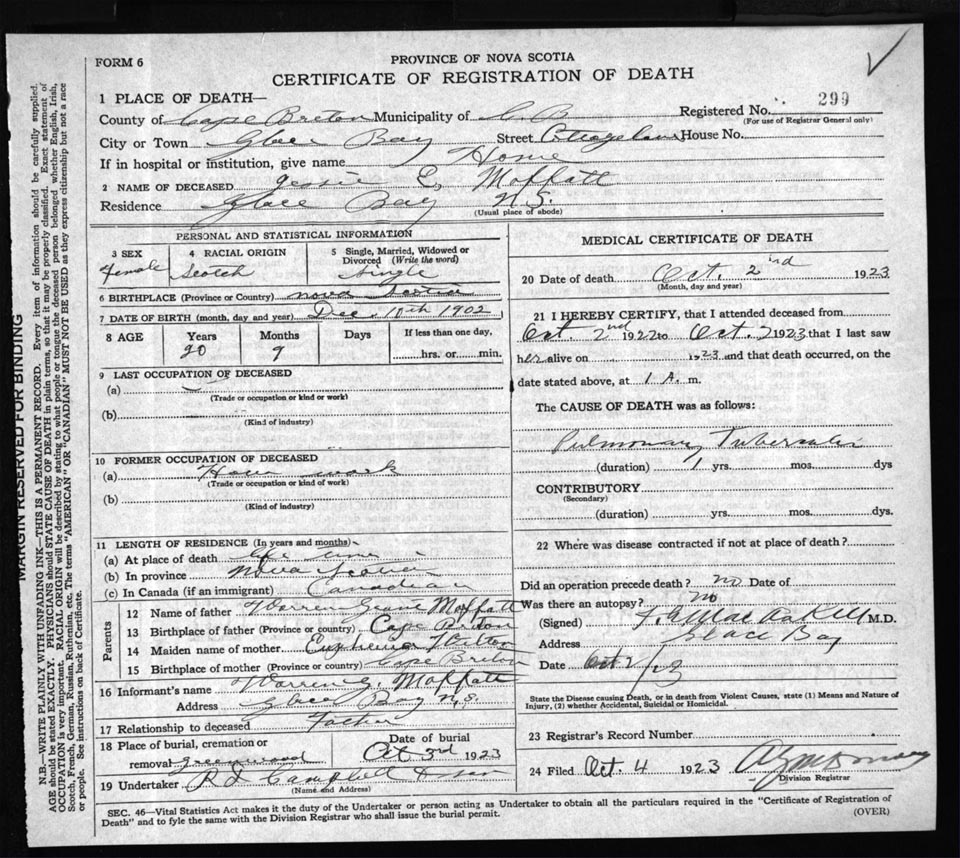 FORM 6
PROVINCE OF NOVA SCOTIA
CERTIFICATE OF REGISTRATION OF DEATH
1 PLACE OF DEATH—
County of Cape Breton Municipality of C. B. Registered No. 299
(For use of Registrar General only)
City or Town Glace Bay Street House No.
If in hospital or institution, give name Home
2 NAME OF DECEASED Jessie E. Moffatt
Residence Glace Bay N.S.
(Usual place of abode)
PERSONAL AND STATISTICAL INFORMATION
3 SEX 4 RACIAL ORIGIN 5 Single, Married, Widowed or Divorced (Write the word)
Female Scotch Single
6 BIRTHPLACE (Province or Country) Nova Scotia
7 DATE OF BIRTH (month, day and year) Dec. 10th 1902
8 AGE Years Months Days If less than one day,
20 9 hrs. or min.
9 LAST OCCUPATION OF DECEASED
(a)
(Trade or occupation or kind or work)
(b)
(Kind of industry)
10 FORMER OCCUPATION OF DECEASED
(a) House work
(Trade or occupation or kind of work)
(b)
(Kind of industry)
11 LENGTH OF RESIDENCE (In years and months)
(a) At place of death life time
(b) In province Nova Scotia
(c) In Canada (if an immigrant) Canadian
Parents
12 Name of father Warren Grant Moffatt
13 Birthplace of father (Province or country) Cape Breton
14 Maiden name of mother Euphemia
15 Birthplace of mother (Province or country) Cape Breton
16 Informant's name Warren G. Moffatt
Address Glace Bay N.S.
17 Relationship to deceased Father
18 Place of burial, cremation or removal Greenwood
Date of burial Oct 3rd 1923
19 Undertaker Campbell & Son
(Name and Address)
MEDICAL CERTIFICATE OF DEATH
20 Date of death Oct. 2nd 1923
(Month, day and year)
21 I HEREBY CERTIFY, that I attended deceased from
Oct. 2nd 1922 to Oct. 2 1923 that I last saw
her alive on 1923 and that death occurred, on the
date stated above, at 1 A. m.
The CAUSE OF DEATH was as follows:
Pulmonary Tuberculosis
(duration) 1 yrs. mos. dys
CONTRIBUTORY
(Secondary)
(duration) yrs. mos. dys.
22 Where was disease contracted if not at place of death?
Did an operation precede death? no Date of
Was there an autopsy? no
(Signed) M.D.
Address Glace Bay
Date Oct 2/23
State the Disease causing Death, or in death from Violent Causes, state (1) Means and Nature of
Injury, (2) whether Accidental, Suicidal or Homicidal.
23 Registrar's Record Number
24 Filed Oct. 4 1923
Division Registrar
SEC. 46—Vital Statistics Act makes it the duty of the Undertaker or person acting as Undertaker to obtain all the particulars required in the "Certificate of Registration of
Death" and to fyle the same with the Division Registrar who shall issue the burial permit.
(OVER)
MARGIN RESERVED FOR BINDING
N.B.—WRITE PLAINLY WITH UNFADING INK—THIS IS A PERMANENT RECORD. Every item of information should be carefully supplied.
AGE should be stated EXACTLY. PHYSICIANS should STATE CAUSE OF DEATH in plain terms, so that it may be properly classified. Exact statement of
OCCUPATION is very important. RACIAL ORIGIN will be described by stating to what people or tongue the deceased person belonged whether English, Irish,
Scotch, French, German, Russian, Ruthenian, etc. The terms "AMERICAN" OR "CANADIAN" MUST NOT BE USED as they express citizenship but not a race
or people. See instructions on back of Certificate.